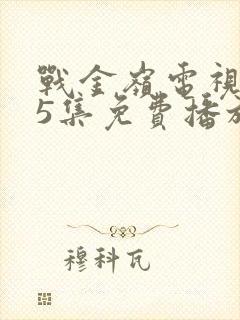 戰金嶺電視
5集免費播放
穆科瓦